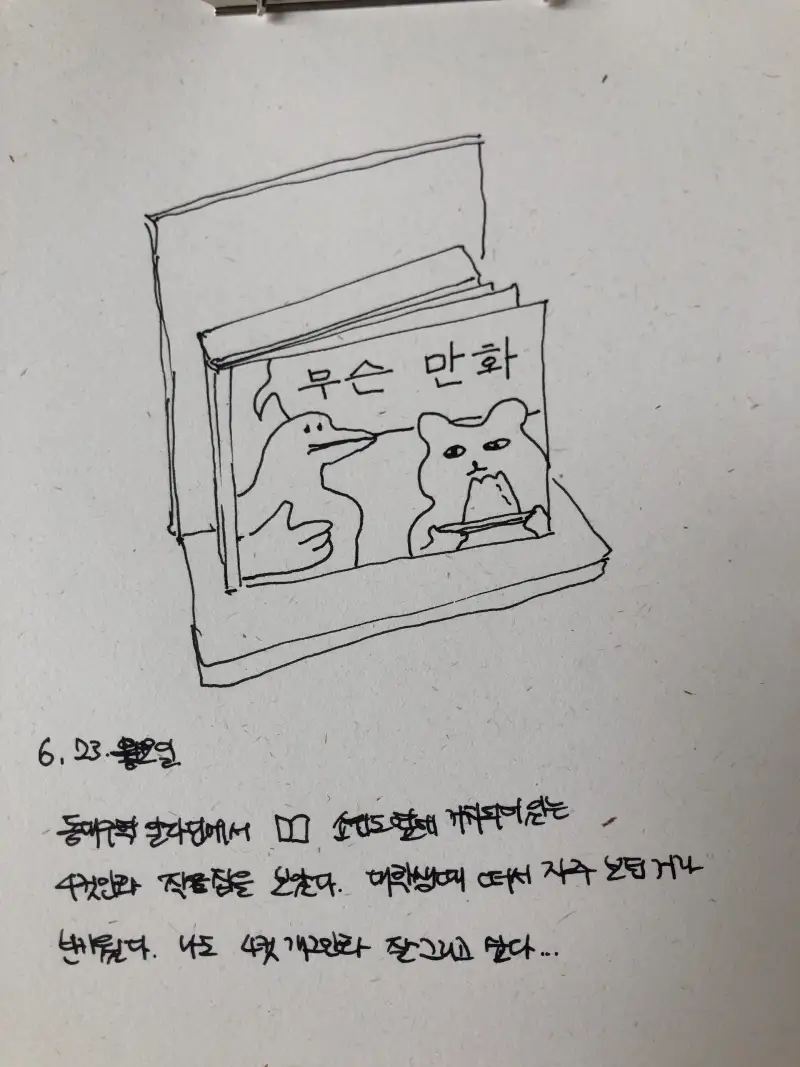 무슨 만화
6. 23. 월요일
동대구역 알라딘에서
4컷만화 작품집을 보았다. 대학생때 떠서 자주 보던 거라
반가웠다. 나도 4컷 개그만화 잘 그리고 싶다...